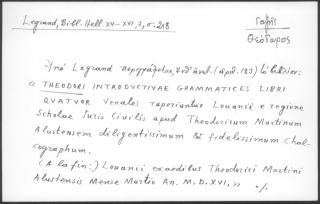 Legrand, Bibl. Hell. XV-XVI, 3, σ. 208
Γαζῆς
Θεόδωρος
Ὑπὸ Legrand περιγράφεται, (ἀριθ. 183) τὸ
« THEODORI INTRODVCTIVAE GRAMMATICES LIBRI
QVATVOR Venales reperiuntur Louanii e regione
Scholae Iuris Ciuilis apud Theodoricum Martinum
Alustensem diligentissimum & fidelissimum Chal-
cographum.
(Α la fin:) Louanii exaedibus Theodorici Martini
Alustensis Mense Martio An. M. D. XVI, »